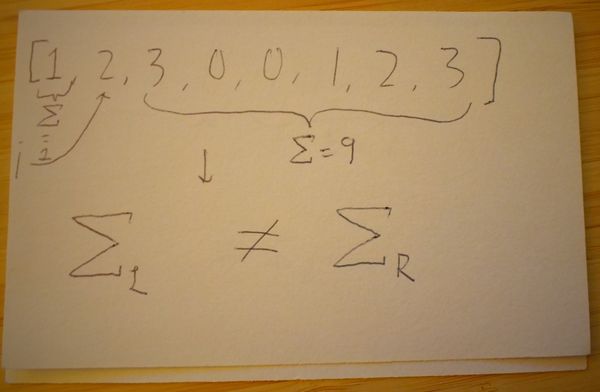 [1, 2, 3, 0, 0, 1, 2, 3]
i Σ=1 Σ=9
↓
Σ_L ≠ Σ_R